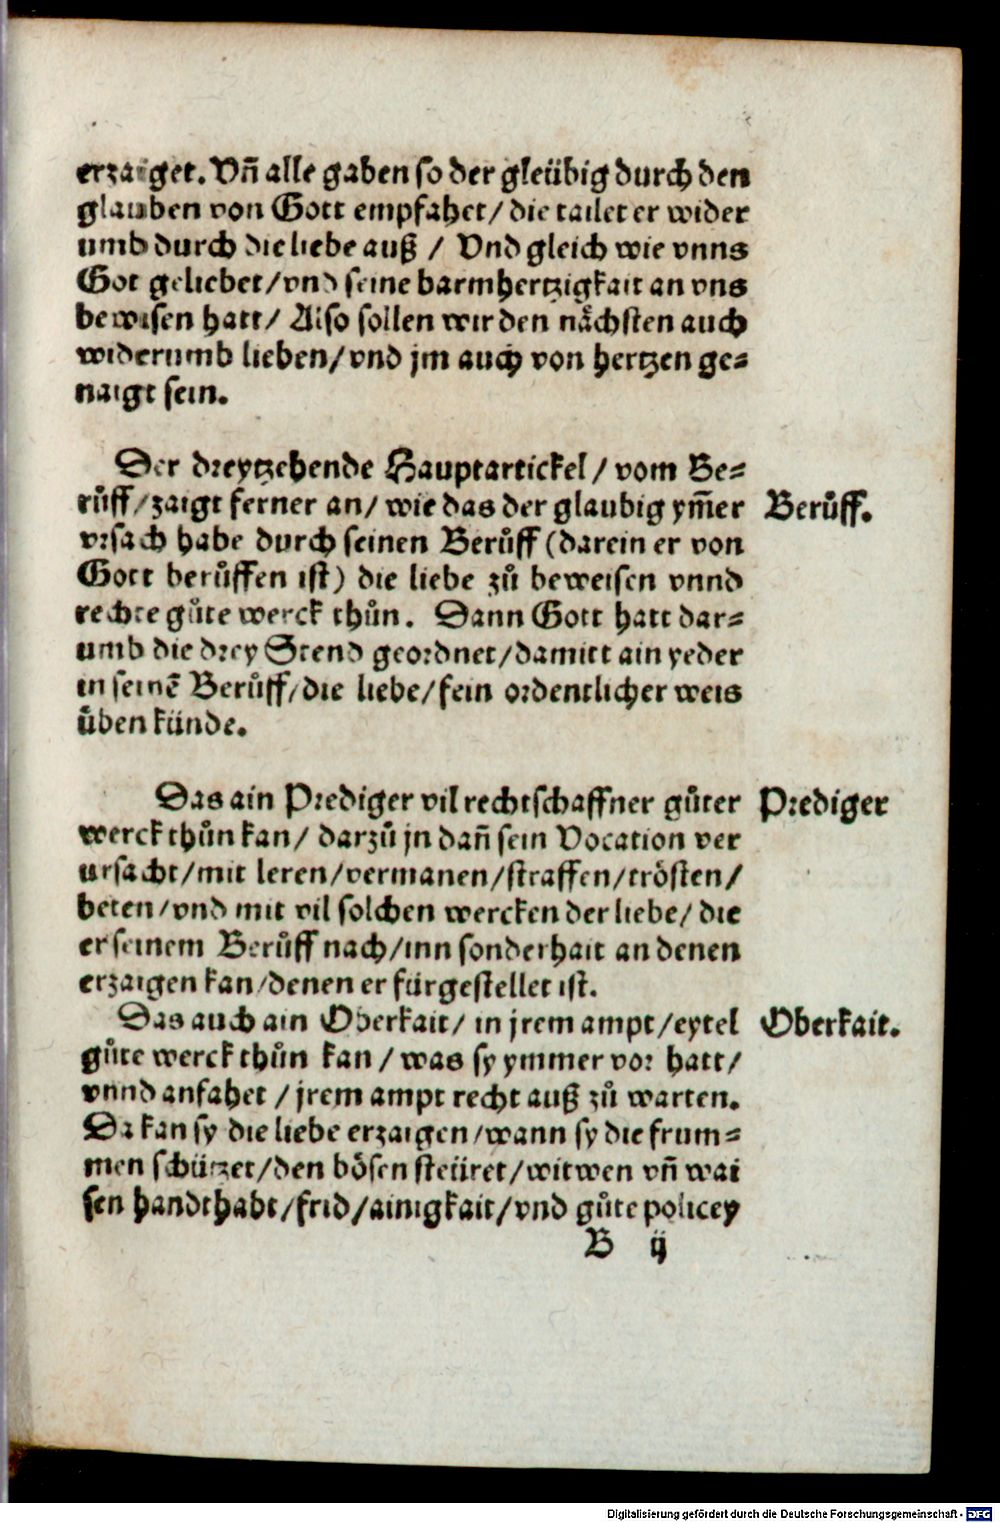 erzaiget. Vñ alle gaben so der gleübig durch den
glauben von Gott empfahet/ die tailet er wider
umb durch die liebe auß / Vnd gleich wie vnns
Got geliebet/vnd seine barmhertzigkait an vns
bewisen hatt/ Also sollen wir den nächsten auch
widerumb lieben/vnd jm auch von hertzen ge=
naigt sein.
Der dreytzehende Hauptartickel / vom Be=
růff/zaigt ferner an/ wie das der glaubig ym̃er
Berůff.
vrsach habe durch seinen Berůff (darein er von
Gott berůffen ist) die liebe zů beweisen vnnd
rechte gůte werck thůn. Dann Gott hatt dar=
umb die drey Stend geordnet/damitt ain yeder
in seinē Berůff/die liebe/fein ordentlicher weis
üben künde.
Das ain Prediger vil rechtschaffner gůter
Prediger
werck thůn kan/ darzů jn dañ sein Vocation ver
ursacht/mit leren/vermanen/straffen/trösten/
beten/vnd mit vil solchen wercken der liebe/ die
er seinem Berůff nach/inn sonderhait an denen
erzaigen kan/denen er fürgestellet ist.
Das auch ain Oberkait/ in jrem ampt/eytel
Oberkait.
gůte werck thůn kan / was sy ymmer vor hatt/
vnnd anfahet / jrem ampt recht auß zů warten.
Da kan sy die liebe erzaigen/wann sy die frum=
men schützet/den bösen steüret/witwen vñ wai
sen handthabt/frid/ainigkait/vnd gůte policey
B ij
Digitalisierung gefördert durch die Deutsche Forschungsgemeinschaft - DFG